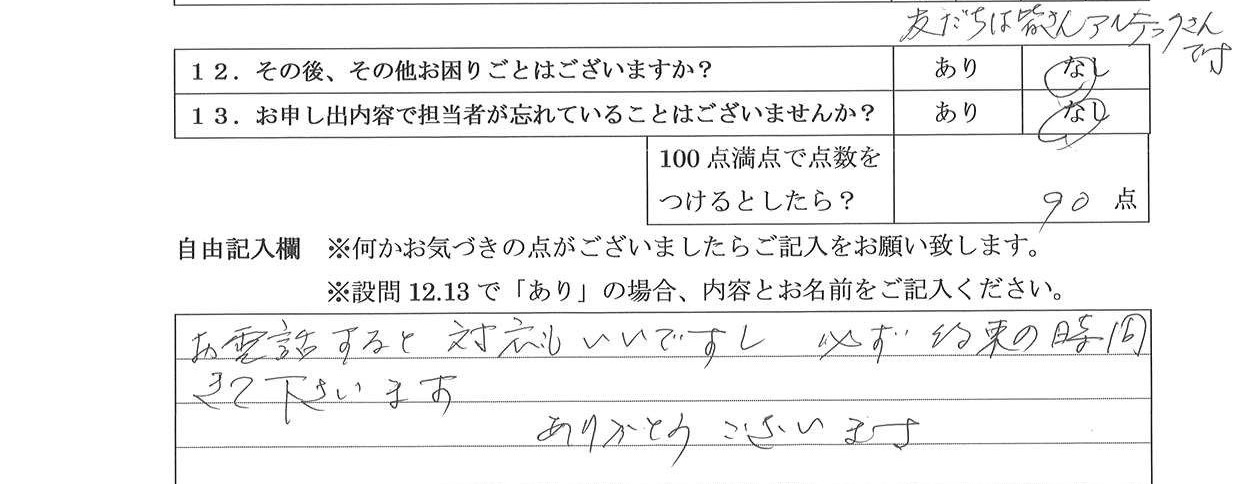 友だちは皆さんアルテックさん
です
12．その後、その他お困りごとはございますか？ あり なし
13．お申し出内容で担当者が忘れていることはございませんか？ あり なし
100点満点で点数を
つけるとしたら？ 90 点
自由記入欄 ※何かお気づきの点がございましたらご記入をお願い致します。
※設問12.13で「あり」の場合、内容とお名前をご記入ください。
お電話すると 対応もいいですし 必ず 約束の時間
きて下さいます
ありがとう ございます